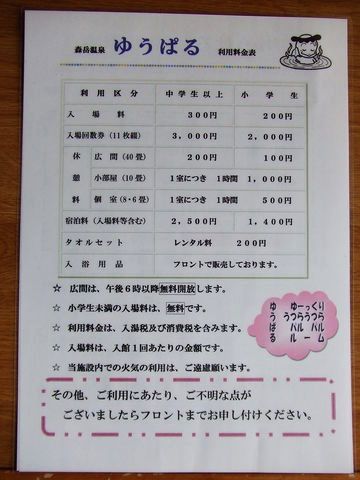 森岳温泉 ゆうぱる 利用料金表
利用区分 中学生以上 小学生
入場料 300円 200円
入場回数券(11枚綴) 3,000円 2,000円
休憩料 広間(40畳) 200円 100円
小部屋(10畳) 1室につき 1時間 1,000円
個室(8・6畳) 1室につき 1時間 500円
宿泊料(入場料等含む) 2,500円 1,400円
タオルセット レンタル料 200円
入浴用品 フロントで販売しております。
☆ 広間は、午後6時以降無料開放します。
☆ 小学生未満の入場料は、無料です。
☆ 利用料金は、入湯税及び消費税を含みます。
☆ 入場料は、入館1回あたりの金額です。
☆ 当施設内での火気の利用は、ご遠慮願います。
ゆ ゆーっくり
う うつらうつら
ぱ パル パル
る ルーム
その他、ご利用にあたり、ご不明な点が
ございましたらフロントまでお申し付けください。